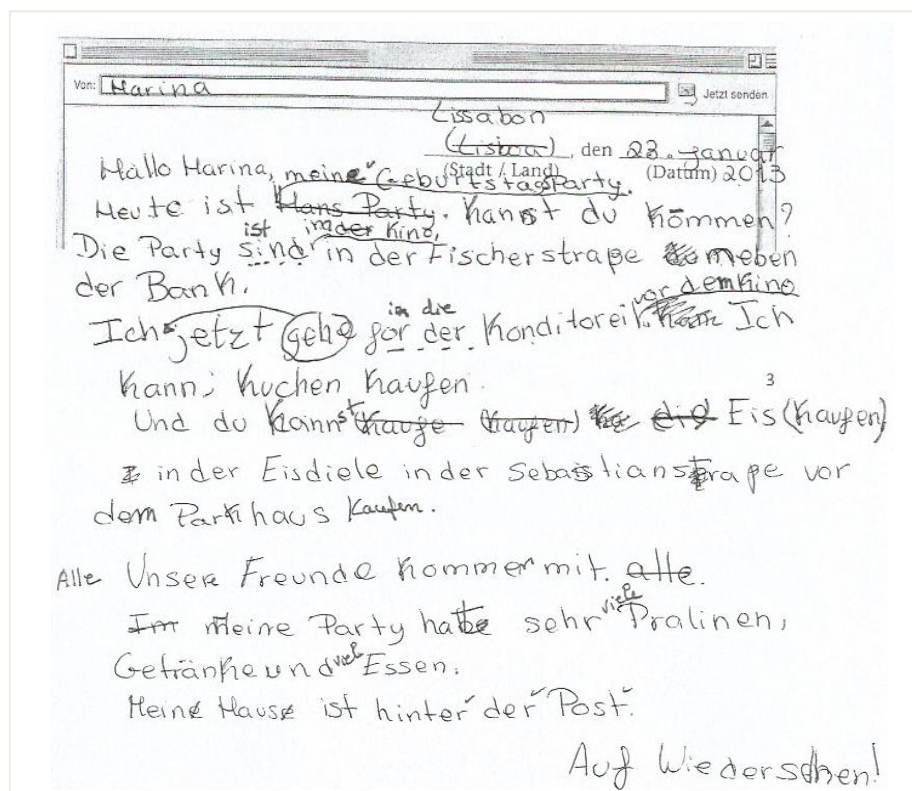 Von: Marina Jetzt senden
Lissabon
(Lisboa), den 23. Januar
(Stadt / Land) (Datum) 2013
Hallo Marina, meine Geburtstagsparty.
Heute ist Hans Party. Kannst du kommen?
ist in der Kino,
Die Party sind in der Fischerstraße neben
der Bank.
in die vor dem Kino
Ich jetzt gehe for der Konditorei. Ich
kann, Kuchen kaufen.
3
Und du kannst kaufe (kaufen) die Eis (kaufen)
in der Eisdiele in der Sebastianstraße vor
dem Parkhaus kaufen.
Alle Unsere Freunde kommen mit. alle.
Im Meine Party hatte sehr viele Pralinen,
Getränke und viel Essen.
Meine Hause ist hinter der Post.
Auf Wiedersehen!